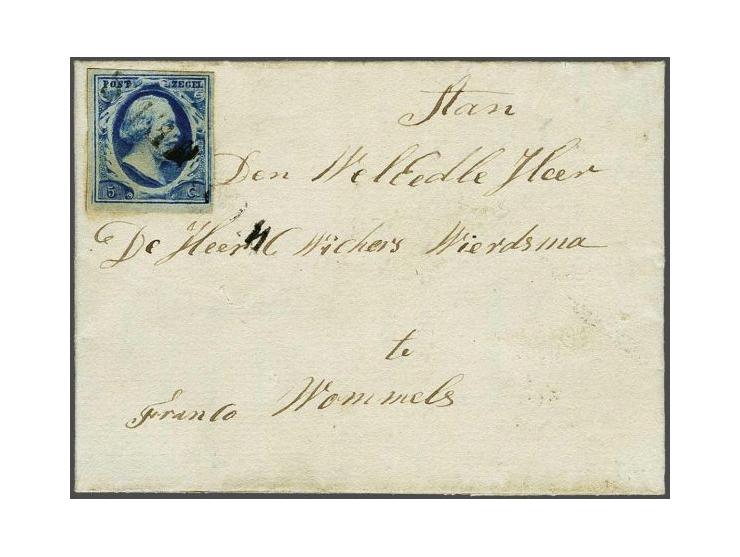 POST ZEGEL
5 C.
Aan
Den WelEedle Heer
De Heer Wichers Wierdsma
te
Franco Wommels